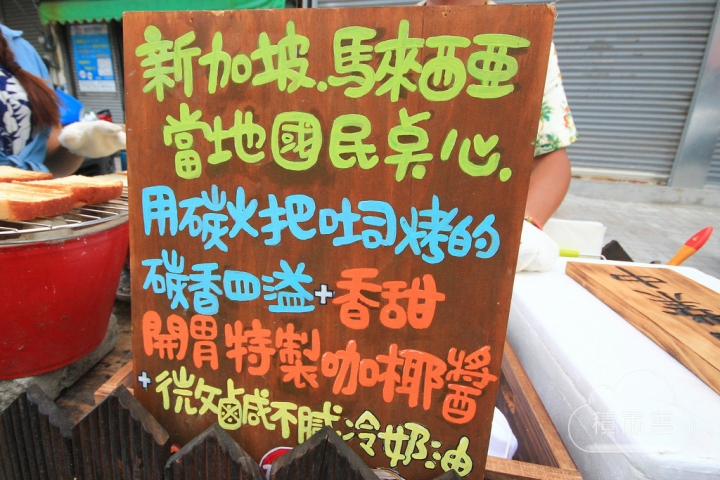 新加坡.馬來西亞
當地國民点心.
用碳火把吐司烤的
碳香四溢+香甜
開胃特製咖椰醬
+微鹹不膩冷奶油